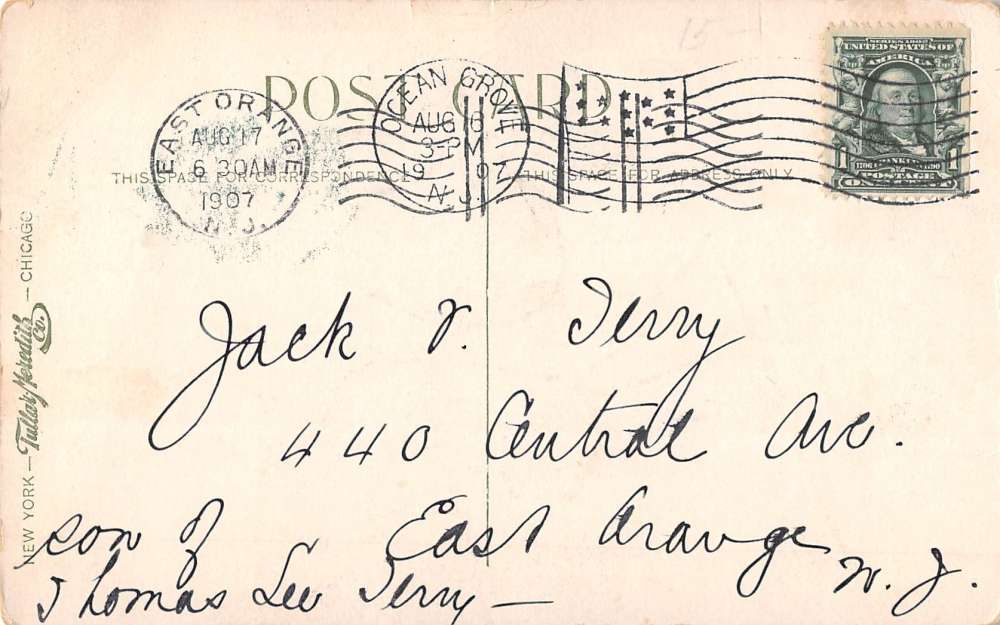 15-
SERIES 1902
UNITED STATES OF
AMERICA
FRANKLIN
1 POSTAGE
POST CARD
EAST ORANGE
AUG 17
6 30 AM
1907
N.J.
OCEAN GROVE
AUG 16
3-PM
1907
N.J.
THIS SPACE FOR CORRESPONDENCE
THIS SPACE FOR ADDRESS ONLY
NEW YORK — Tullar-Meredith Co. — CHICAGO
Jack V. Terry
440 Central Ave.
East Orange
N. J.
son of
Thomas Lee Terry —